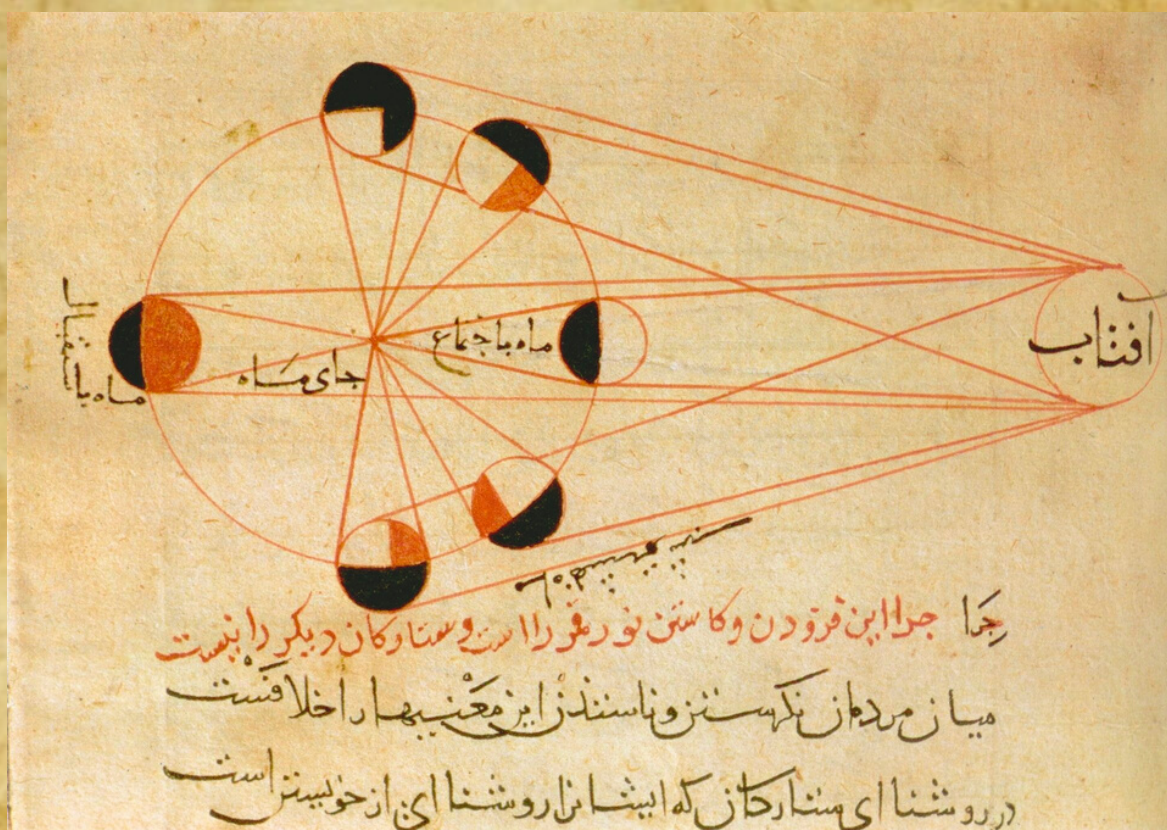 افتاب
ماه باجتماع
جای ماه
ماه باستقبال
جرا این فزودن و کاستن نور قمر را است و ستارکان دیکر را نیست
میان مردمان نکرستن این معنیها را خلافست
در روشنا ای ستارکان که ایشانرا روشنا ای از خویشتن است